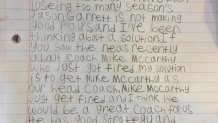 loseing too many seasons
Jason Garrett is not making
good Plays, and I've been
thinking about a solution if
you saw the news recently
about Coach Mike McCarthy
who Just got fired my solution
is to get Mike McCarthy as
our head Coach. Mike McCarthy
Just got fired and I think he
would be a great Coach for us
good strategy and